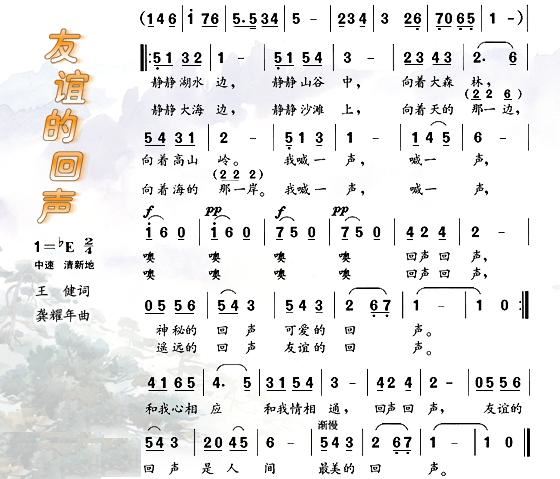 友谊的回声
1=♭E 2/4
中速 清新地
王 健词
龚耀年曲
(146 | i 76 | 5·534 | 5 - | 234 | 3 26 | 7065 | 1 -)
51 32 | 1 - | 51 54 | 3 - | 23 43 | 2· 6
静静湖水 边， 静静山谷 中， 向着大森 林，
(2 2 6)
静静大海 边， 静静沙滩 上， 向着天的 那一边，
54 31 | 2 - | 513 | 1 - | 145 | 6 -
向着高山 岭。 我喊一 声， 喊一 声，
(2 2 2)
向着海的 那一岸。我喊一 声， 喊一 声，
f pp f pp
i60 | i60 | 750 | 750 | 424 | 2 -
噢 噢 噢 噢 回声回 声，
噢 噢 噢 噢 回声回 声，
05 56 | 543 | 543 | 2 67 | 1 - | 1 0
神秘的 回 声 可爱的 回 声。
遥远的 回 声 友谊的 回 声。
41 65 | 4· 5 | 31 54 | 3 - | 42 4 | 2 - | 05 56
和我心相 应 和我情相 通， 回声回 声， 友谊的
渐慢
543 | 20 45 | 6 - | 543 | 2 67 | 1 - | 1 0
回 声 是人 间 最美的 回 声。